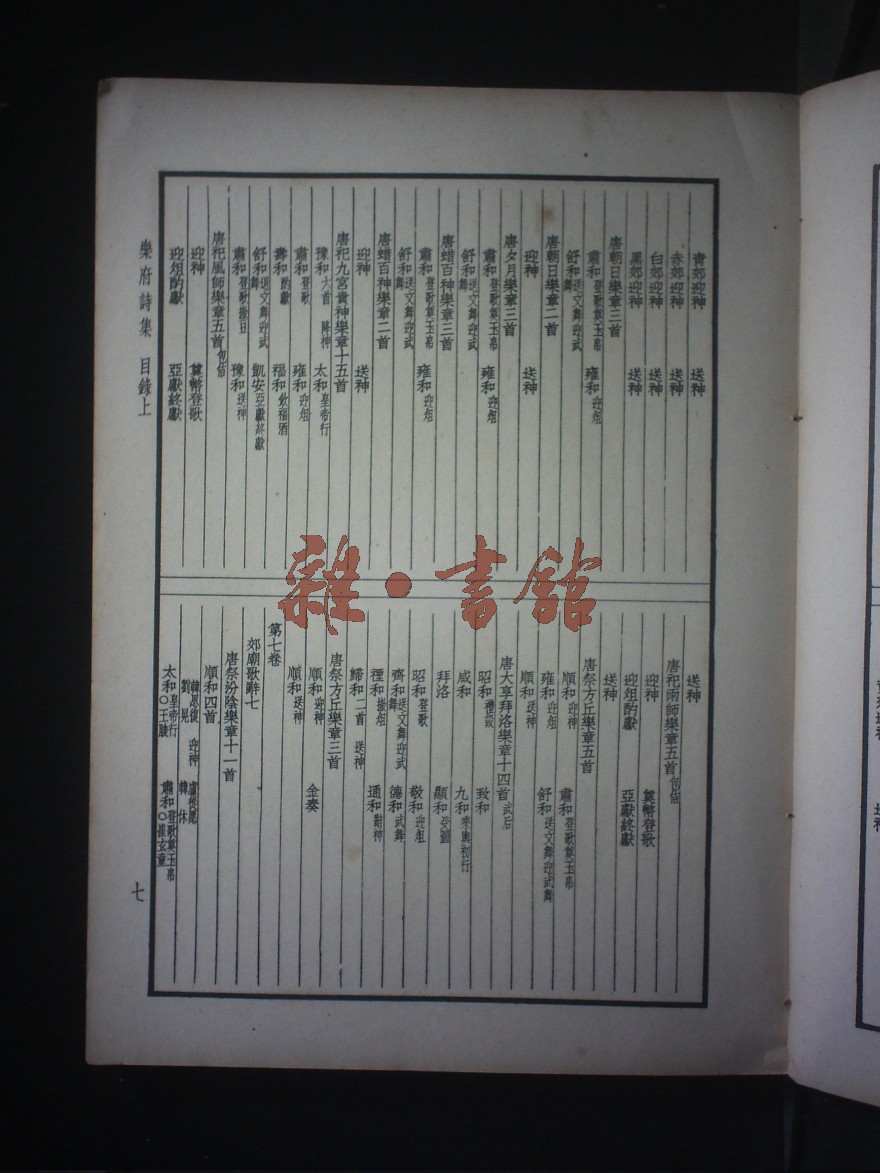 青郊迎神 送神
赤郊迎神 送神
白郊迎神 送神
黑郊迎神 送神
唐朝日樂章三首
肅和登歌奠玉帛 雍和迎俎
舒和送文舞迎武舞
唐朝日樂章二首
迎神 送神
唐夕月樂章三首
肅和登歌奠玉帛 雍和迎俎
舒和送文舞迎武舞
唐蜡百神樂章三首
肅和登歌奠玉帛 雍和迎俎
舒和送文舞迎武舞
唐蜡百神樂章二首
迎神 送神
唐祀九宮貴神樂章十五首
豫和六首 降神 太和皇帝行
肅和登歌 雍和迎俎
壽和酌獻 福和飲福酒
舒和送文舞迎武舞 凱安亞獻終獻
肅和登歌撤豆 豫和送神
唐祀風師樂章五首包佶
迎神 奠幣登歌
迎俎酌獻 亞獻終獻
送神
唐祀雨師樂章五首包佶
迎神 奠幣登歌
迎俎酌獻 亞獻終獻
送神
唐祭方丘樂章五首
順和迎神 肅和登歌奠玉帛
雍和迎俎 舒和送文舞迎武舞
順和送神
唐大享拜洛樂章十四首武后
昭和禮設 致和
咸和 九和乘輿初行
拜洛 顯和受圖
昭和登歌 敬和迎俎
齊和送文舞迎武舞 德和武舞
禋和撤俎 通和辭神
歸和二首 送神
唐祭方丘樂章三首
順和迎神 金奏
順和送神
第七卷
郊廟歌辭七
唐祭汾陰樂章十一首
順和四首
韓思復 迎神 盧從愿
劉晃 韓休
太和皇帝行○王晙 肅和登歌奠玉帛○崔玄童
樂府詩集 目錄上
七
雜·書館